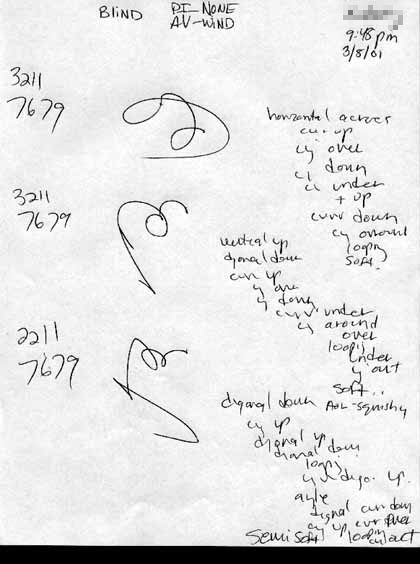 BLIND
PI-NONE
AV-WIND
9:48 pm
3/8/01
3211
7679
horizontal across
cur up
cy over
down
under
+ up
curv down
cy around
looping
soft.
3211
7679
vertical up
dignal down
curv up
cy over
cy down
curv under
cy around
over
looping
under
cy out
soft..
2211
7679
dignal down AOL-squishy
cy up
dignal up
dignal down
loopy
up.
angle
dignal curv down
cy up curv over
Semi soft looping cy out